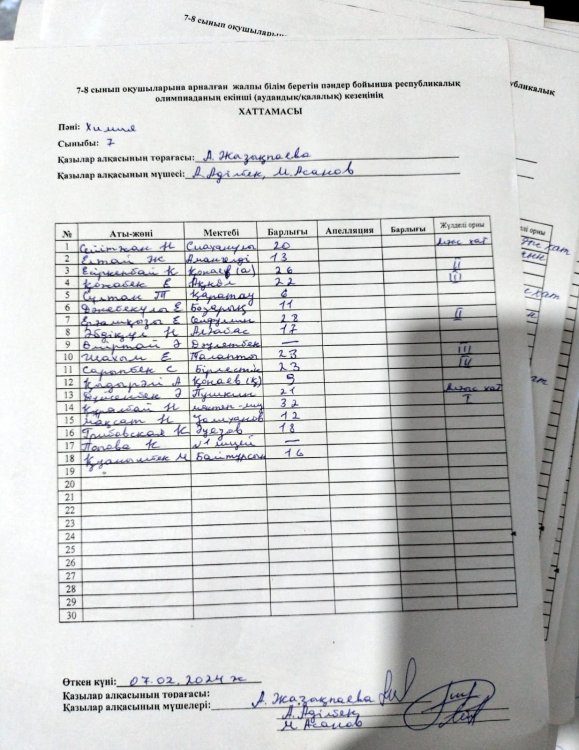 7-8 сынып оқушыларын
7-8 сынып оқушыларына арналған жалпы білім беретін пәндер бойынша республикалық
олимпиаданың екінші (аудандық/қалалық) кезеңінің
ХАТТАМАСЫ
Пәні: Химия
Сыныбы: 7
Қазылар алқасының төрағасы: А. Жазықпаева
Қазылар алқасының мүшесі: А. Әділбек, М. Асанов
№ Аты-жөні Мектебі Барлығы Апелляция Барлығы Жүлделі орны
1 Сейтжан Н 20 Мақт хат
2 Елтай Ж Аманкелді 13
3 Еркенбай К Қонаев (а) 26 II
4 Қожабек Е Ақкөл 22 III
5 Сұлтан Т Қаратау 6
6 Дәнебекұлы Е 11
7 Ерғамқызы Е Сейфуллин 28 II
8 Әбдіқұл Н Алғабас 17
9 Өмиртай Ә Дәулетбек —
10 Шахым Е Талапты 23 III
11 Сарыпбек С Бірлестік 23 III
12 Қадырәлі А Қонаев (қ) 9
13 Дүйсенбек Ә Пушкин 21 Мақт хат
14 Құралбай Н мектеп-лиц 32 I
15 Мақсат Н 12
16 Грибовская К Әуезов 18
17 Попова К №1 лицей —
18 Қуанышбек М Байтұрсын 16
19
20
21
22
23
24
25
26
27
28
29
30
Өткен күні: 07.02.2024 ж
Қазылар алқасының төрағасы: А. Жазықпаева
Қазылар алқасының мүшелері: А. Әділбек
М Асанов